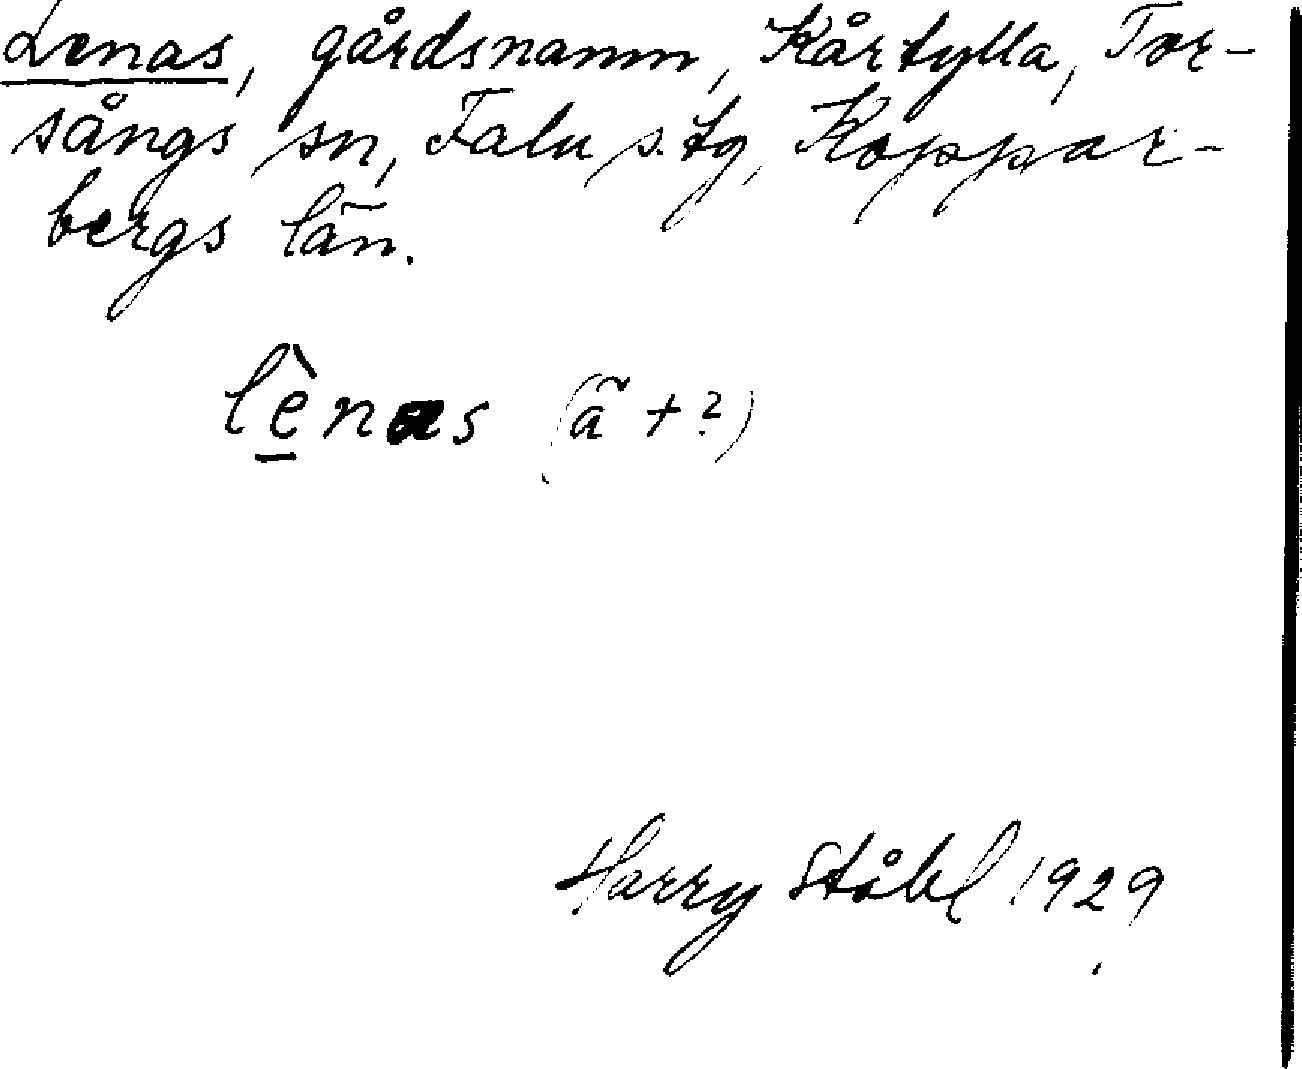 Lenas, gårdsnamn, Kårtylla, Tor-
sångs sn, Falu s. tg, Koppar-
bergs län.
lè̱nas (ã + ?)
Harry Ståhl 1929